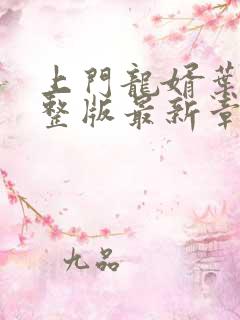 上門龍婿葉
整版最新章
九品